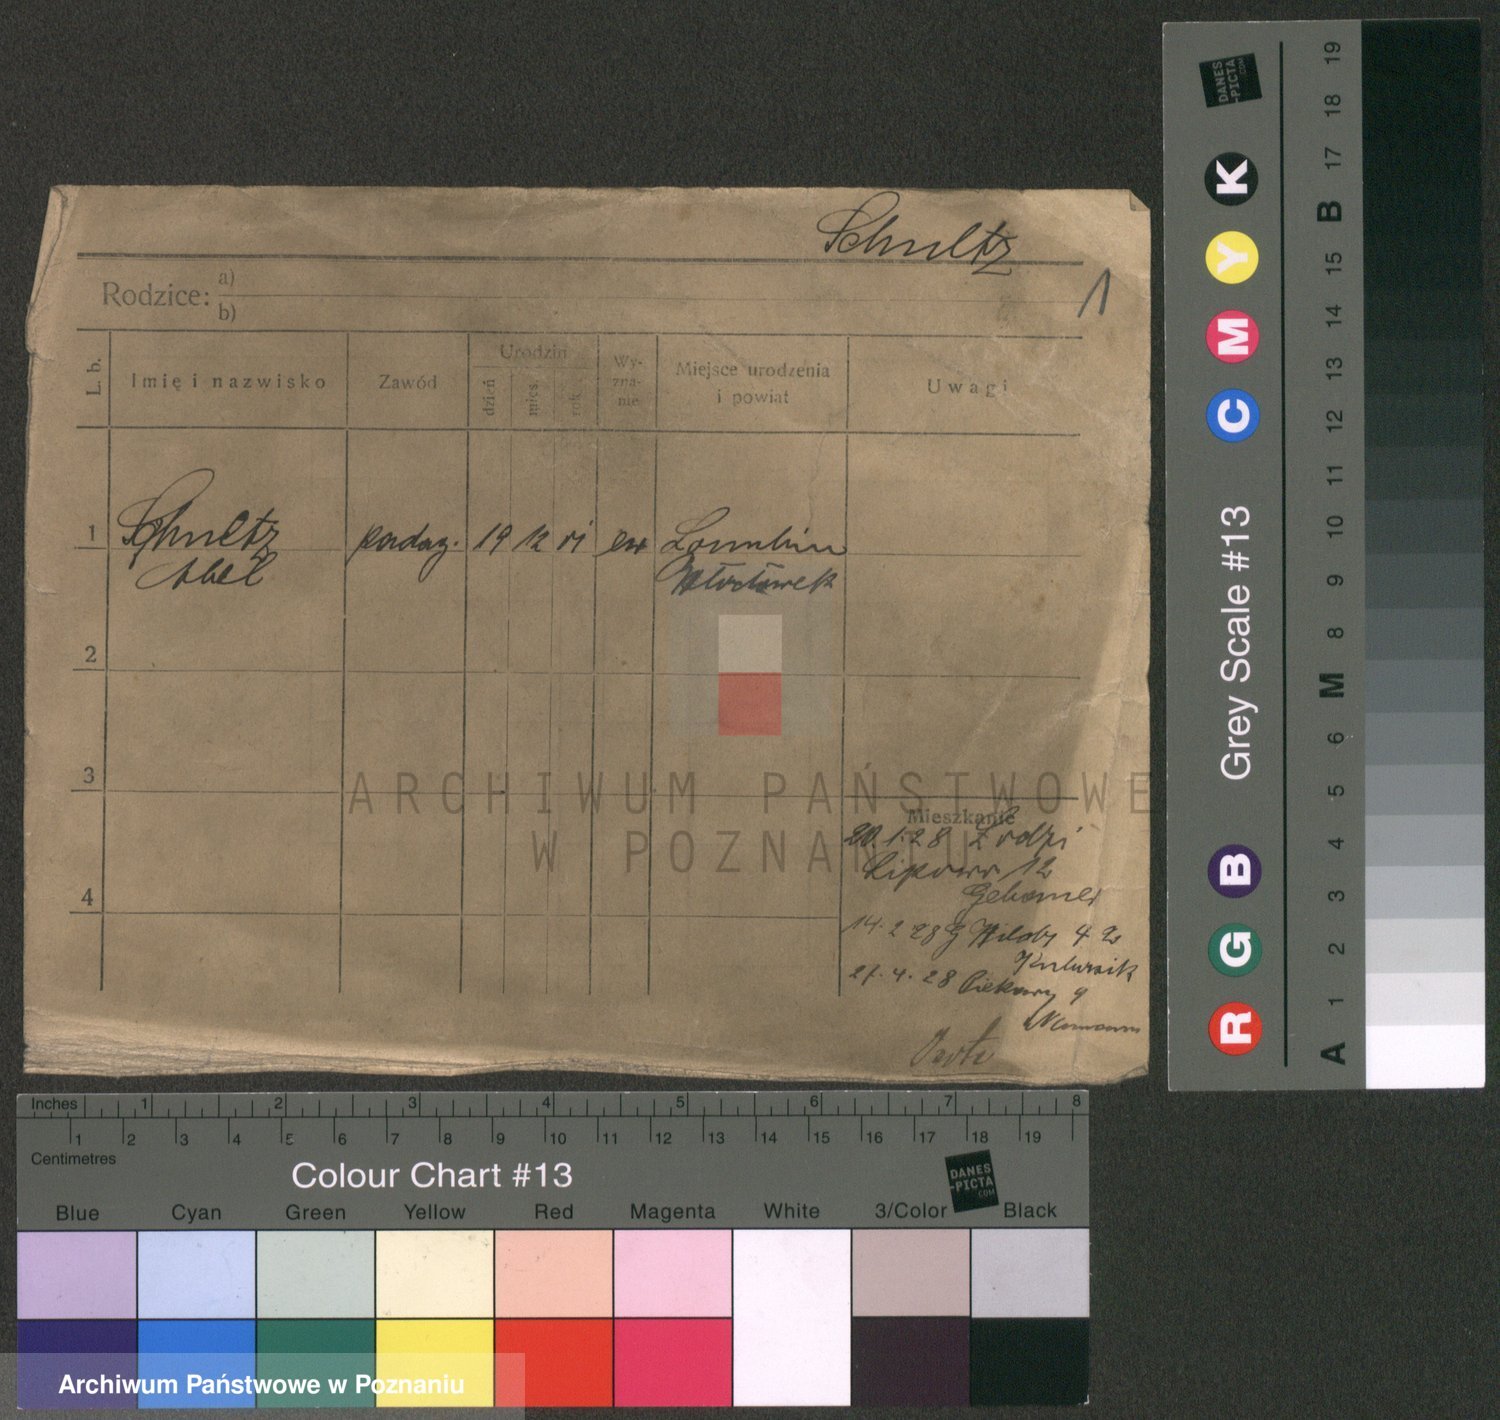 Schultz
1
Rodzice: a)
b)
L. b.
Imię i nazwisko
Zawód
Urodzin
dzień
mies.
rok
Wy-
zna-
nie
Miejsce urodzenia
i powiat
Uwagi
1 Schultz 19 12 ew
Abel Włocławek
2
3
4
Mieszkanie
20.1.28 Łodzi
Lipowa 12
14.2.28 G Wildy 42
27.4.28 Piekary 9
Neumann
ARCHIWUM PAŃSTWOWE
W POZNANIU
DANES
-PICTA
.COM
R G B Grey Scale #13 C M Y K
A 1 2 3 4 5 6 M 8 9 10 11 12 13 14 15 B 17 18 19
Inches 1 2 3 4 5 6 7 8
1 2 3 4 5 6 7 8 9 10 11 12 13 14 15 16 17 18 19
Centimetres
Colour Chart #13
DANES
-PICTA
.COM
Blue Cyan Green Yellow Red Magenta White 3/Color Black
Archiwum Państwowe w Poznaniu